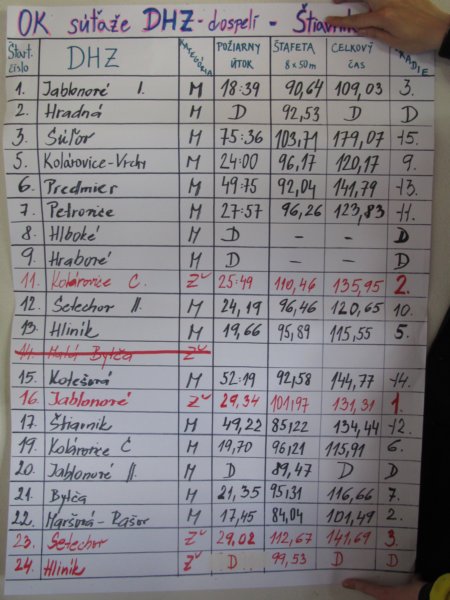 OK súťaže DHZ - dospelí - Štiavnik
Štart. číslo DHZ KATEGÓRIA POŽIARNY ÚTOK ŠTAFETA 8x50m CELKOVÝ ČAS
1. Jablonové I. M 18:39 90,64 109,03 3.
2. Hradná M D 92,53 D D
3. Súľov M 75:36 103,71 179,07 15.
5. Kolárovice-Vrchy M 24:00 96,17 120,17 9.
6. Predmier M 49:75 92,04 141,79 13.
7. Petrovice M 27:57 96,26 123,83 11.
8. Hlboké M D - - D
9. Hrabové M D - - D
11. Kolárovice C. Ž 25:49 110,46 135,95 2.
12. Setechov II. M 24,19 96,46 120,65 10.
13. Hliník M 19,66 95,89 115,55 5.
14. Malá Bytča Ž
15. Kotešová M 52:19 92,58 144,77 14.
16. Jablonové Ž 29,34 101,97 131,31 1.
17. Štiavnik M 49,22 85,22 134,44 12.
19. Kolárovice C M 19,70 96,21 115,91 6.
20. Jablonové II. M D 89,47 D D
21. Bytča M 21,35 95,31 116,66 7.
22. Maršová-Rašov M 17,45 84,04 101,49 2.
23. Setechov Ž 29,02 112,67 141,69 3.
24. Hliník Ž D 99,53 D D